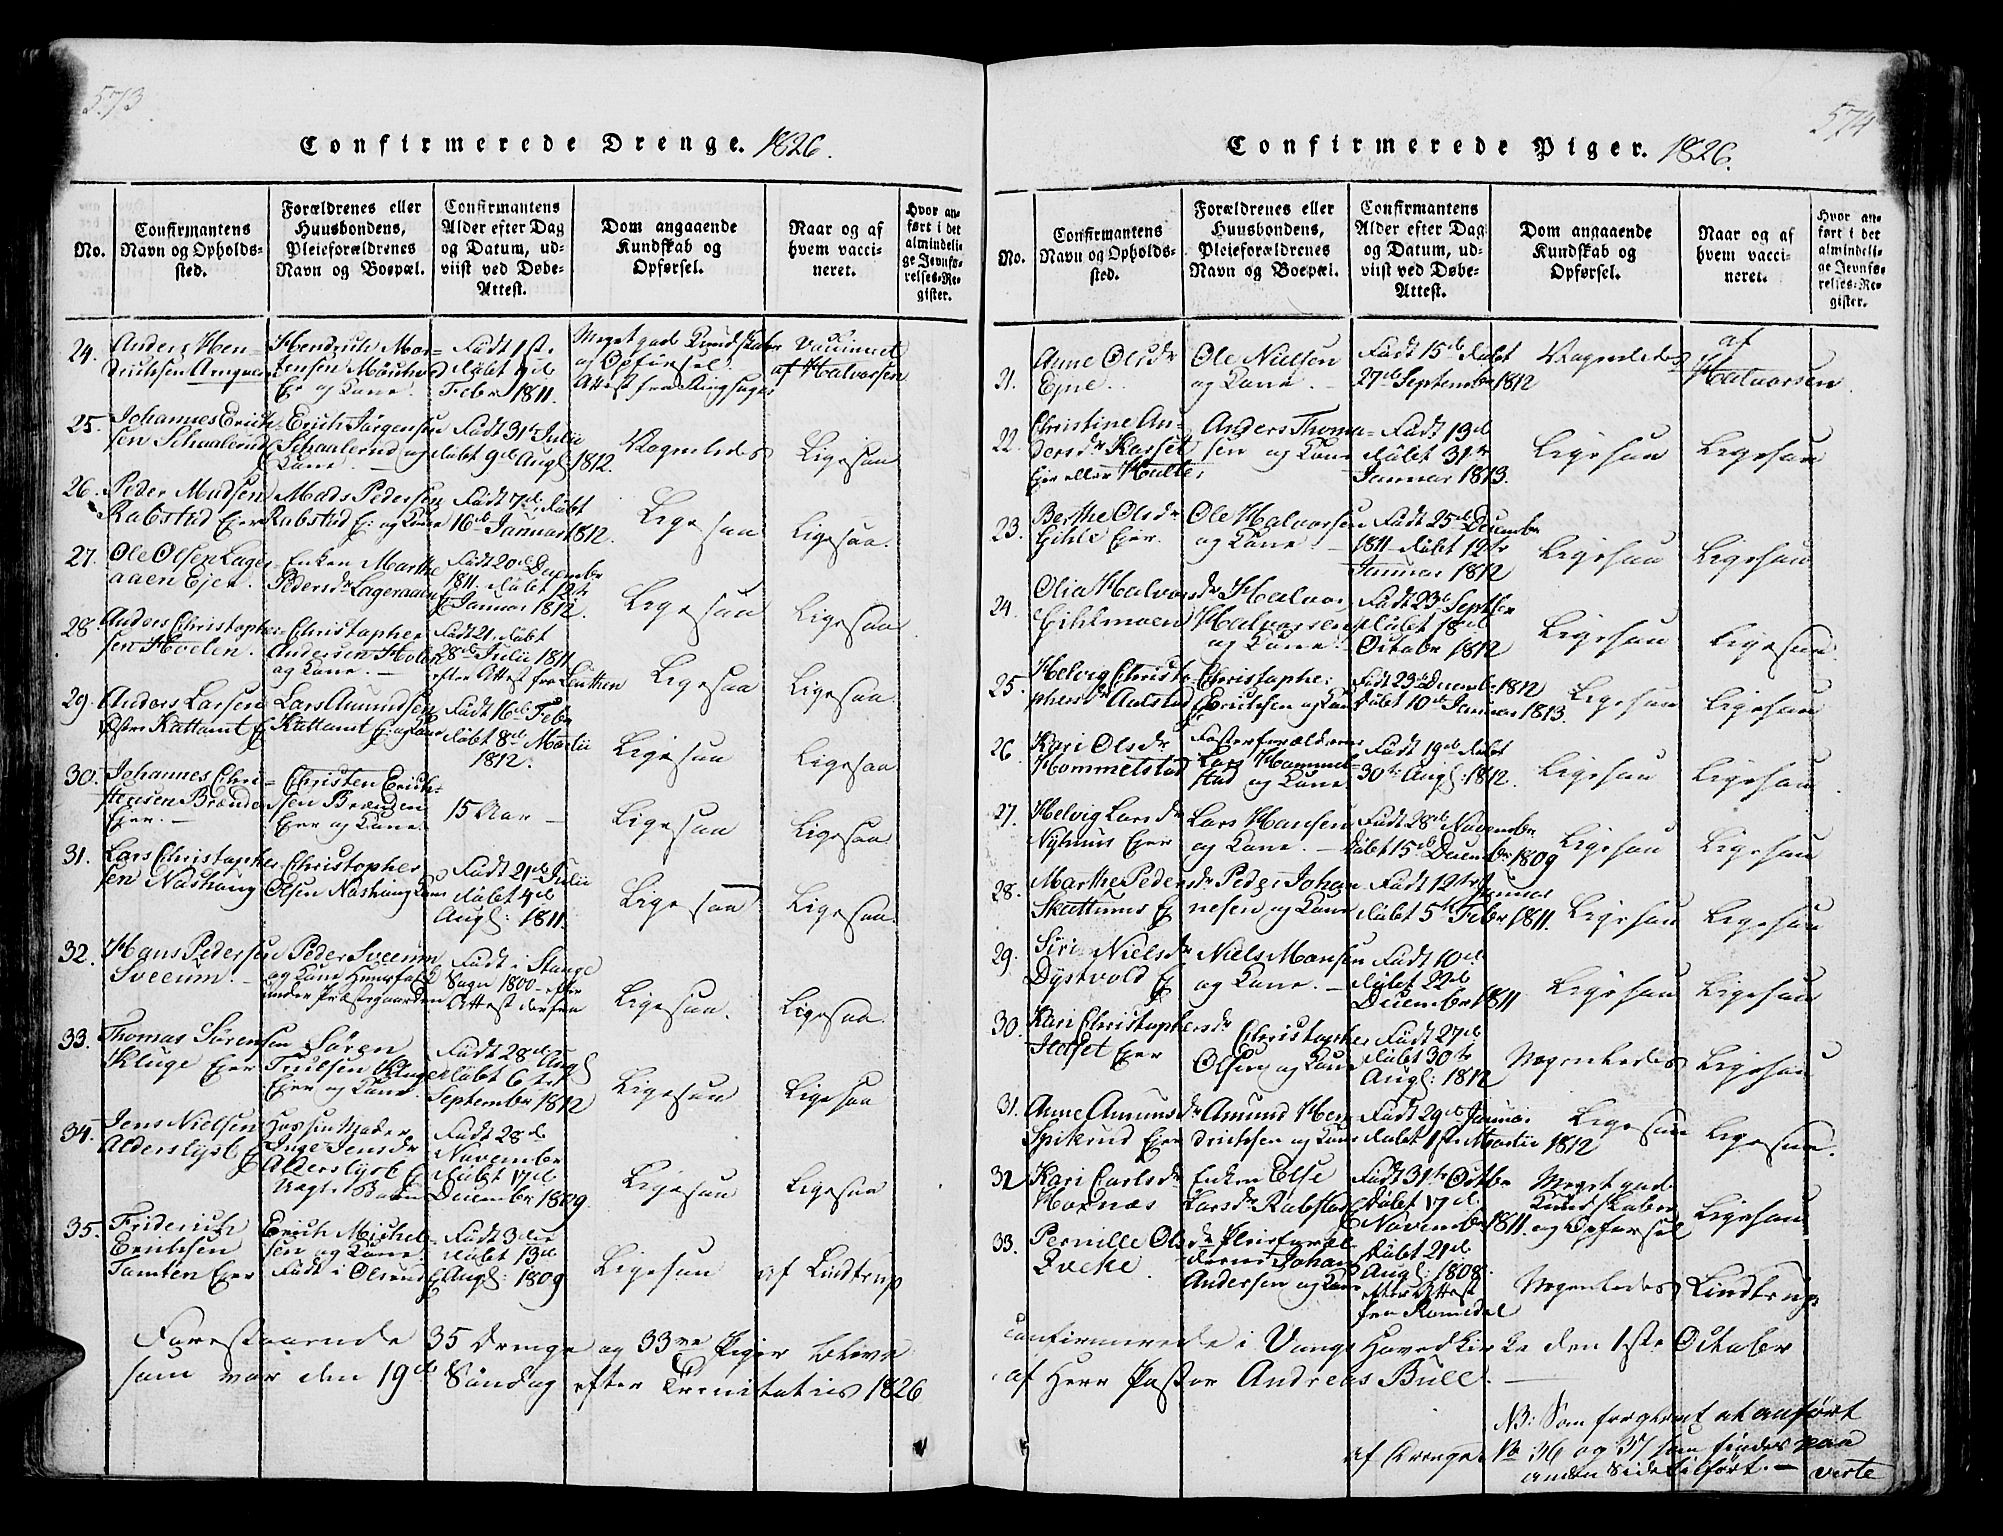 573
Confirmerede Drenge. 1826.
No.
Confirmantens Navn og Opholdssted.
Forældrenes eller Huusbondens, Pleieforældrenes Navn og Boepæl.
Confirmantens Alder efter Dag og Datum, udviist ved Døbe-Attest.
Dom angaaende Kundskab og Opførsel.
Naar og af hvem vaccineret.
Hvor anført i det almindelige Jevnførelses-Register.
24. Anders Hendrichsen
Hendrich Mortensen
og Kone.
Født 1ste
Døbt
Febr 1811.
Meget god Kundskaber
og Opførsel.
Attest fra Ringsager
vaccineret
af Halvorsen
25. Johannes Erichsen Schaalerud
Erich Jørgensen
Schaalerud og
Kone
Født 31te Julii
Døbt 9de Augs: 1812.
Nogenledes
Ligesaa
26. Peder Madsen
Rabstad Eier
Mads Pedersen
Rabstad Ei: og Kone
Født 7de, Døbt
16de Januar 1812.
Ligesaa
Ligesaa.
27. Ole Olsen Lageraaen Ejer.
Enken Marthe
Pedersdr Lageraaen
Født 20de Decembr
1811. Døbt 12te
Januar 1812.
Ligesaa
Ligesaa
28. Anders Christophersen Hoelen.
Christopher
Andersen Holen
og Kone.
Født 21, Døbt
28de Julii 1811
efter Attest fra Leuthen
Ligesaa
Ligesaa.
29. Anders Larsen
Østre Kattamt E
Lars Amundsen
Kattamt Ei: og Kone
Født 16de Febr
Døbt 8de Martii
1812.
Ligesaa
Ligesaa
30. Johannes Christensen Brænden
Ejer.
Christen Erichsen Brænden
Ejer og Kone
15 Aar
Ligesaa
Ligesaa
31. Lars Christophersen Nashaug
Christopher
Olsen Nashaug Kone
Født 21de Julii
Døbt 4de
Augs: 1811.
Ligesaa
Ligesaa.
32. Hans Pedersen
Sveeum.
Peder Sveeum
og Kone
under Præstegaarden
Født i Stange
Sogn 1800 efter
Attest derfra
Ligesaa.
Ligesaa
33. Thomas Sørensen
Kluge Ejer
Søren
Truelsen Kluge
Ejer og Kone
Født 28de Augs
Døbt 6te
September 1812
Ligesaa
Ligesaa
34. Jens Nielsen
Alderslyst E
Hos sin Moder
Inge Jensdr
Alderslyst E
Født 28de
November
Døbt 17de
December 1809.
Ligesaa
Ligesaa
35. Friderich
Erichsen
Tomten Ejer
Erich Michelsen og Kone.
Født i Olsrud E
Født 3die
Døbt 13de
Augs: 1809
Ligesaa
af Lindtrup
Forestaaende 35 Drenge og 33ve Piger bleve
som var den 19de Søndag efter Trinitatis 1826
574
Confirmerede Piger. 1826.
No.
Confirmantens Navn og Opholdssted.
Forældrenes eller Huusbondens, Pleieforældrenes Navn og Boepæl.
Confirmantens Alder efter Dag og Datum, udviist ved Døbe-Attest.
Dom angaaende Kundskab og Opførsel.
Naar og af hvem vaccineret.
Hvor anført i det almindelige Jevnførelses-Register.
21. Anne Olsdr
Ole Nielsen
og Kone.
Født 15de Døbt
27de September 1812
Nogenledes
af
Halvorsen.
22. Christine Andersdr Kasset
Ejer eller Hulte
Anders Thomasen og Kone
Født 19de
Døbt 31te
Januar 1813.
Ligesaa
Ligesaa
23. Berthe Olsdr
Gihle Ejer.
Ole Halvorsen
og Kone
Født 25de Decembr
1811 Døbt 12te
Januar 1812
Ligesaa
Ligesaa
24. Olia Halvorsdr
Gihlmoen
Halvor
Halvorsen
og Kone
Født 23de Septbr
Døbt 18de
October 1812
Ligesaa
Ligesaa.
25. Helvig Christophersdr Aalstad
Christopher
Erichsen og Kone
Født 23de Decembr 1812
Døbt 10de Januar 1813.
Ligesaa
Ligesaa
26. Kari Olsdr
Hommelstad
Fosterforældrene
Lars Hommelstad og Kone
Født 19de Døbt
30te Augs: 1812.
Ligesaa
Ligesaa
27. Helvig Larsdr
Nyhuus Ejer
Lars Hansen
og Kone.
Født 28de Novembr
Døbt 15de Decembr 1809
Ligesaa
Ligesaa
28. Marthe Pedersdr
Skattums Ej
Peder Johannesen og Kone
Født 12te Januar
Døbt 5te Febr 1811.
Ligesaa
Ligesaa
29. Siri Nielsdr
Dystvold Ej
Niels Monsen
og Kone.
Født 10de
Døbt 22de
December 1811
Ligesaa
Ligesaa
30. Kari Christophersdr
Ilset Ejer
Christopher
Olsen og Kone
Født 27de
Døbt 30te
Augs: 1812
Nogenledes
Ligesaa
31. Anne Amundsdr
Spikrud Ejer
Amund Hendrichsen og Kone
Født 29de Januar
Døbt 1ste Martii 1812
Ligesaa
Ligesaa.
32 Kari Carlsdr
Hornæs
Enken Else
Larsdr Rabstad E
Født 31te Octbr
Døbt 17de
November 1811.
Meget god
Kundskaber
og Opførsel
Ligesaa
33. Pernille Olsdr
Pleieforældrene Johan
Andersen og Kone
Døbt 21de
Augs: 1808.
efter Attest
fra Romedal
Nogenledes
Lindtrup
confirmerede i Vangs Hovedkirke den 1ste October
af Herr Pastor Andreas Bull.
NB: Som forglemt at anført
af Drenge No 36 og 37 som findes paa
anden Side tilført. — verte